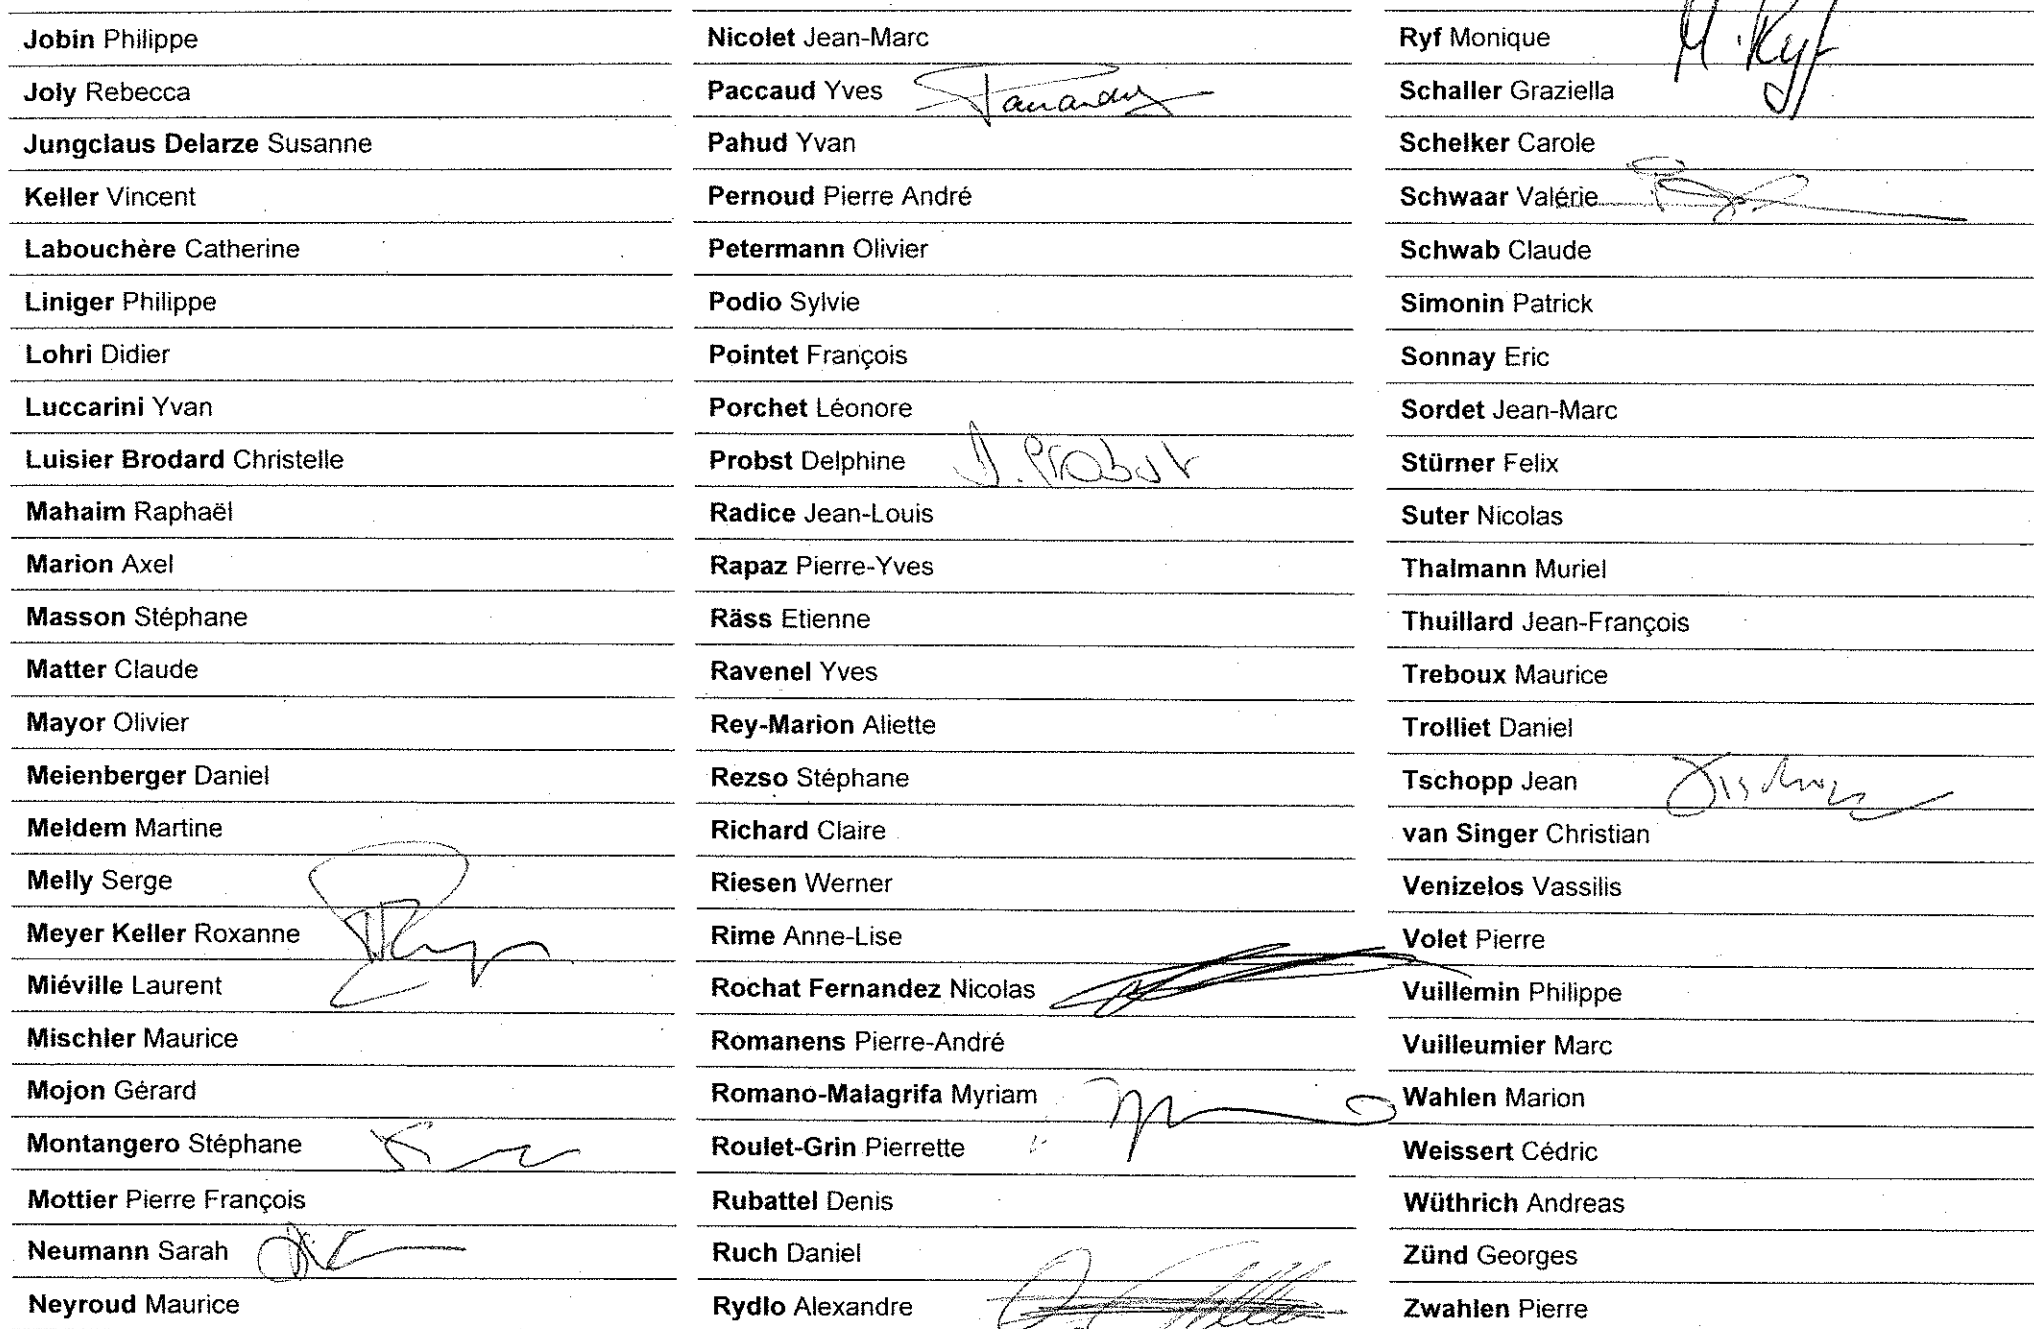 Jobin Philippe
Joly Rebecca
Jungclaus Delarze Susanne
Keller Vincent
Labouchère Catherine
Liniger Philippe
Lohri Didier
Luccarini Yvan
Luisier Brodard Christelle
Mahaim Raphaël
Marion Axel
Masson Stéphane
Matter Claude
Mayor Olivier
Meienberger Daniel
Meldem Martine
Melly Serge
Meyer Keller Roxanne
Miéville Laurent
Mischler Maurice
Mojon Gérard
Montangero Stéphane
Mottier Pierre François
Neumann Sarah
Neyroud Maurice
Nicolet Jean-Marc
Paccaud Yves
Pahud Yvan
Pernoud Pierre André
Petermann Olivier
Podio Sylvie
Pointet François
Porchet Léonore
Probst Delphine D. Probst
Radice Jean-Louis
Rapaz Pierre-Yves
Räss Etienne
Ravenel Yves
Rey-Marion Aliette
Rezso Stéphane
Richard Claire
Riesen Werner
Rime Anne-Lise
Rochat Fernandez Nicolas
Romanens Pierre-André
Romano-Malagrifa Myriam
Roulet-Grin Pierrette
Rubattel Denis
Ruch Daniel
Rydlo Alexandre
Ryf Monique M. Ryf
Schaller Graziella
Schelker Carole
Schwaar Valérie
Schwab Claude
Simonin Patrick
Sonnay Eric
Sordet Jean-Marc
Stürner Felix
Suter Nicolas
Thalmann Muriel
Thuillard Jean-François
Treboux Maurice
Trolliet Daniel
Tschopp Jean
van Singer Christian
Venizelos Vassilis
Volet Pierre
Vuillemin Philippe
Vuilleumier Marc
Wahlen Marion
Weissert Cédric
Wüthrich Andreas
Zünd Georges
Zwahlen Pierre